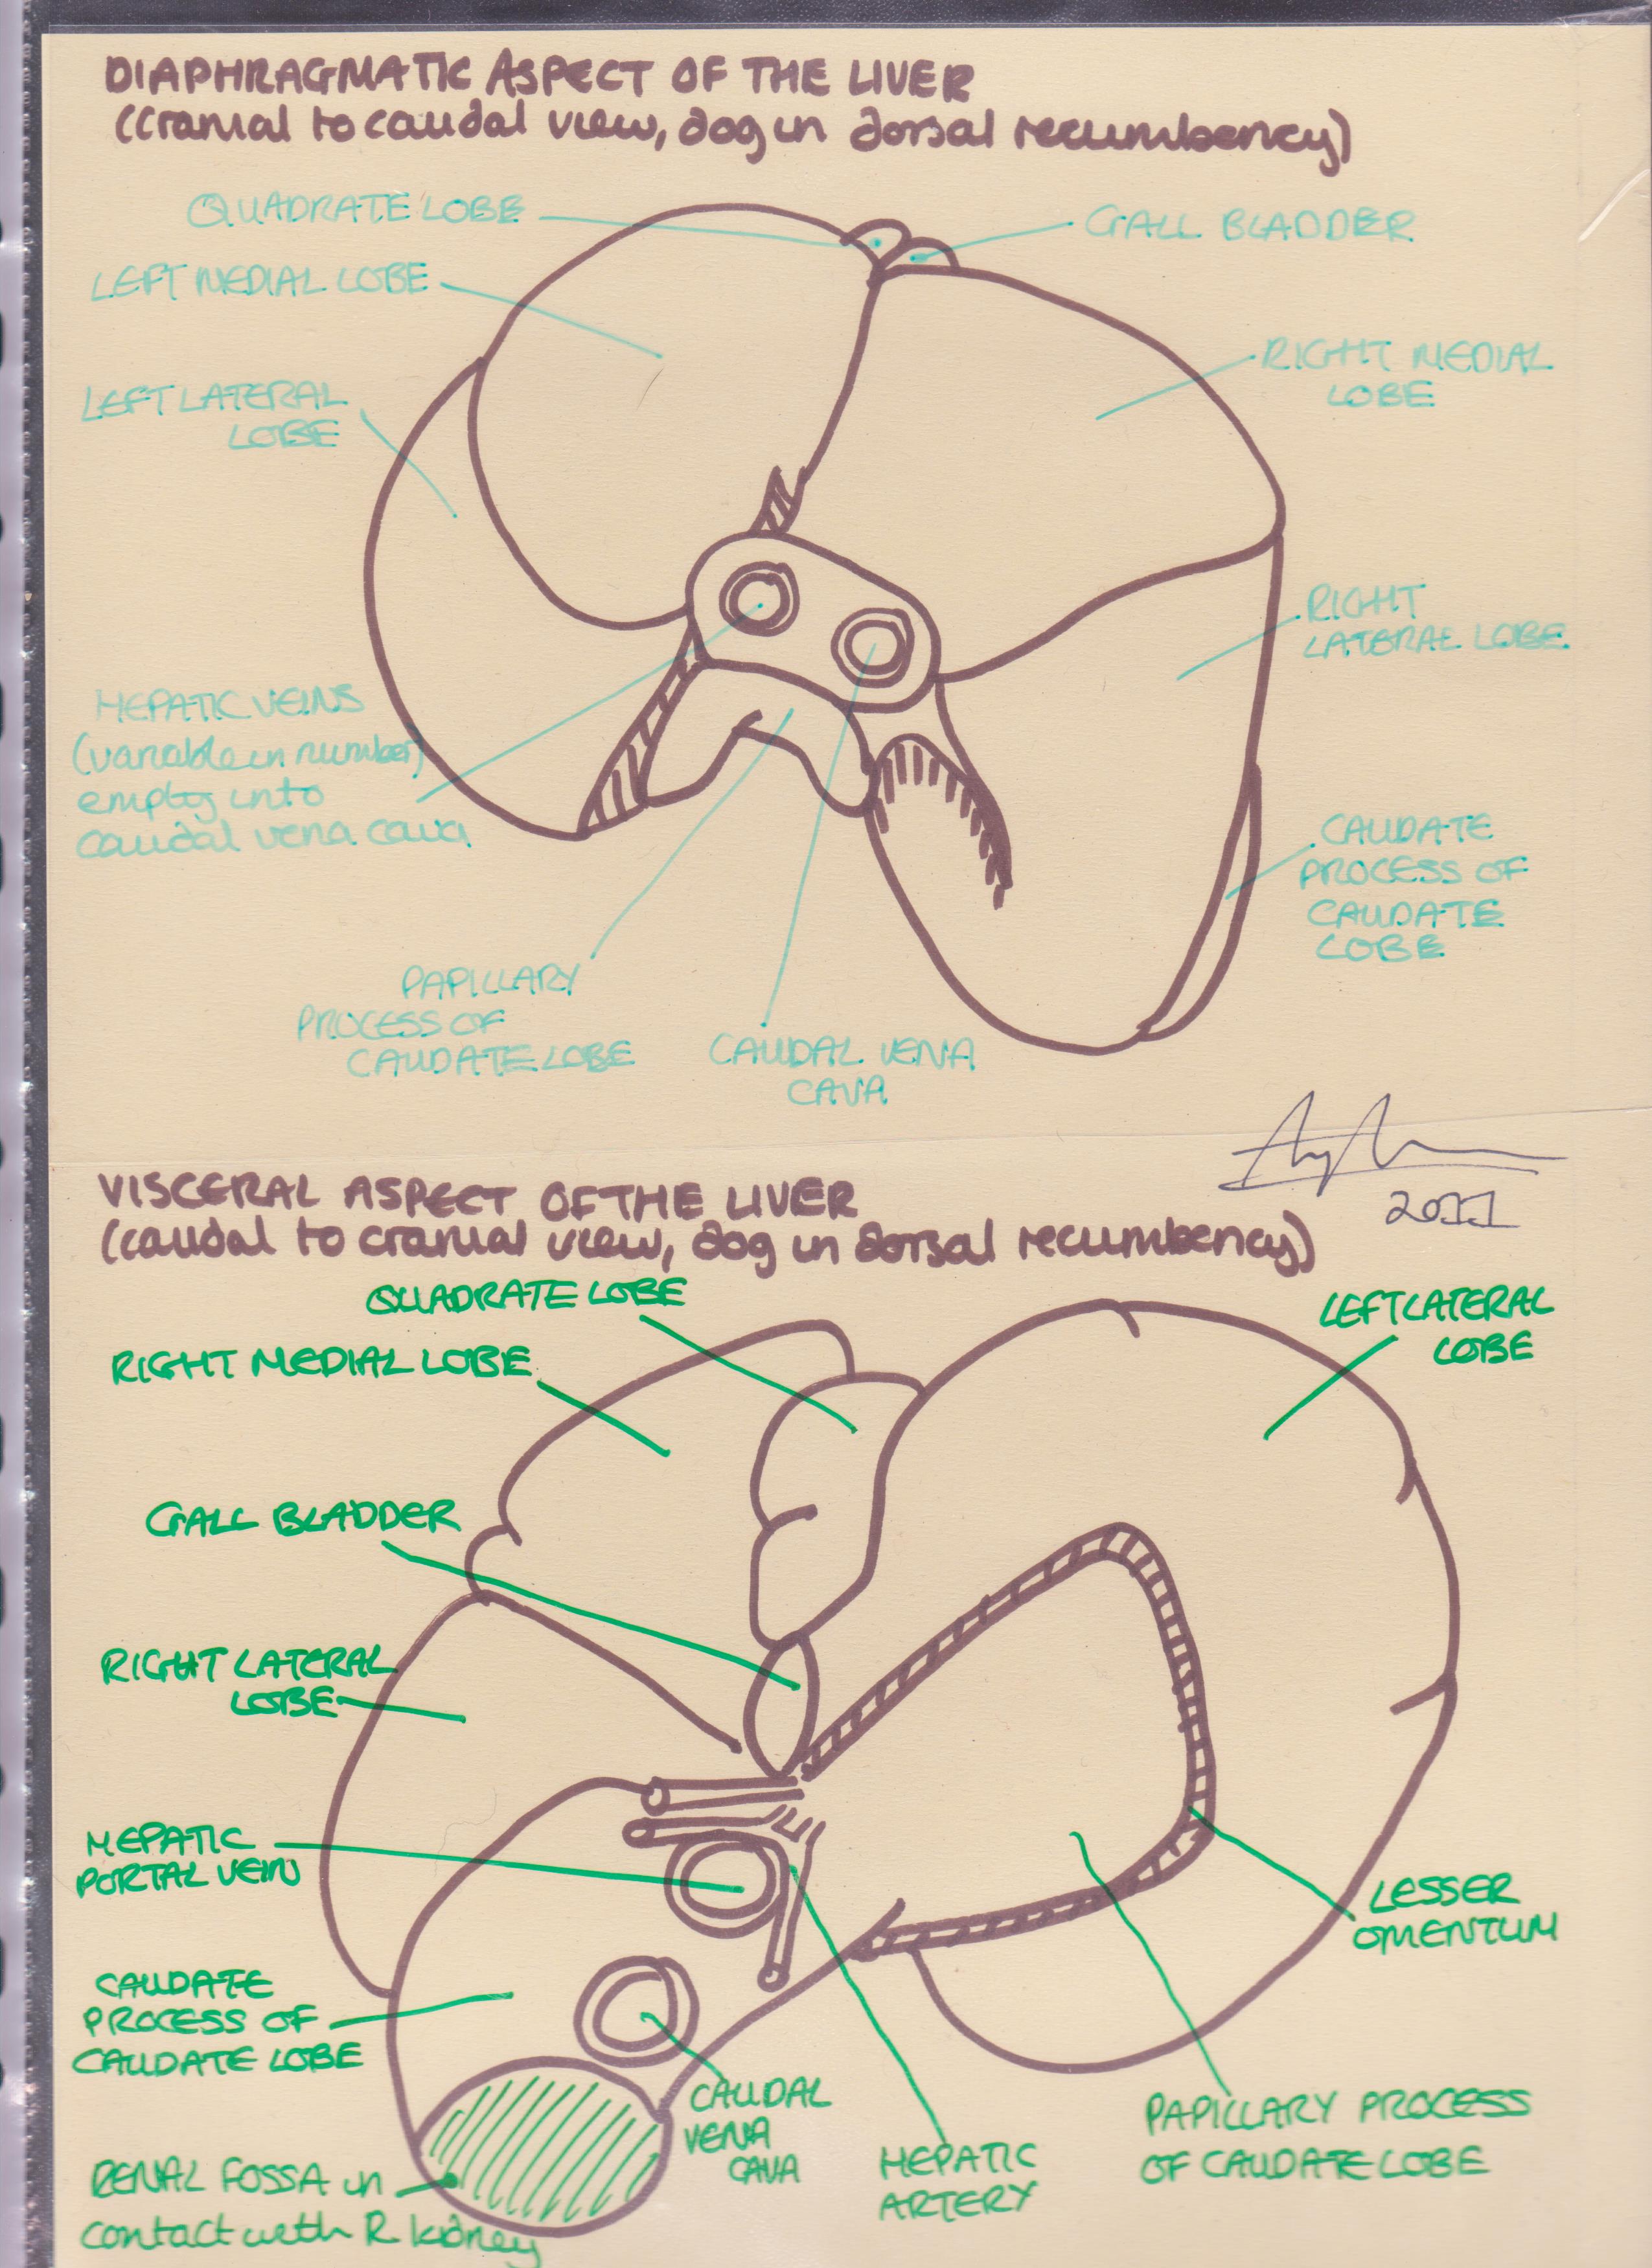 DIAPHRAGMATIC ASPECT OF THE LIVER
(cranial to caudal view, dog in dorsal recumbency)
QUADRATE LOBE
GALL BLADDER
LEFT MEDIAL LOBE
RIGHT MEDIAL
LOBE
LEFT LATERAL
LOBE
RIGHT
LATERAL LOBE
HEPATIC VEINS
(variable in number)
empty into
caudal vena cava
CAUDATE
PROCESS OF
CAUDATE
LOBE
PAPILLARY
PROCESS OF
CAUDATE LOBE
CAUDAL VENA
CAVA
2011
VISCERAL ASPECT OF THE LIVER
(caudal to cranial view, dog in dorsal recumbency)
QUADRATE LOBE
LEFT LATERAL
LOBE
RIGHT MEDIAL LOBE
GALL BLADDER
RIGHT LATERAL
LOBE
HEPATIC
PORTAL VEIN
LESSER
OMENTUM
CAUDATE
PROCESS OF
CAUDATE LOBE
CAUDAL
VENA
CAVA
HEPATIC
ARTERY
PAPILLARY PROCESS
OF CAUDATE LOBE
RENAL FOSSA in
contact with R kidney